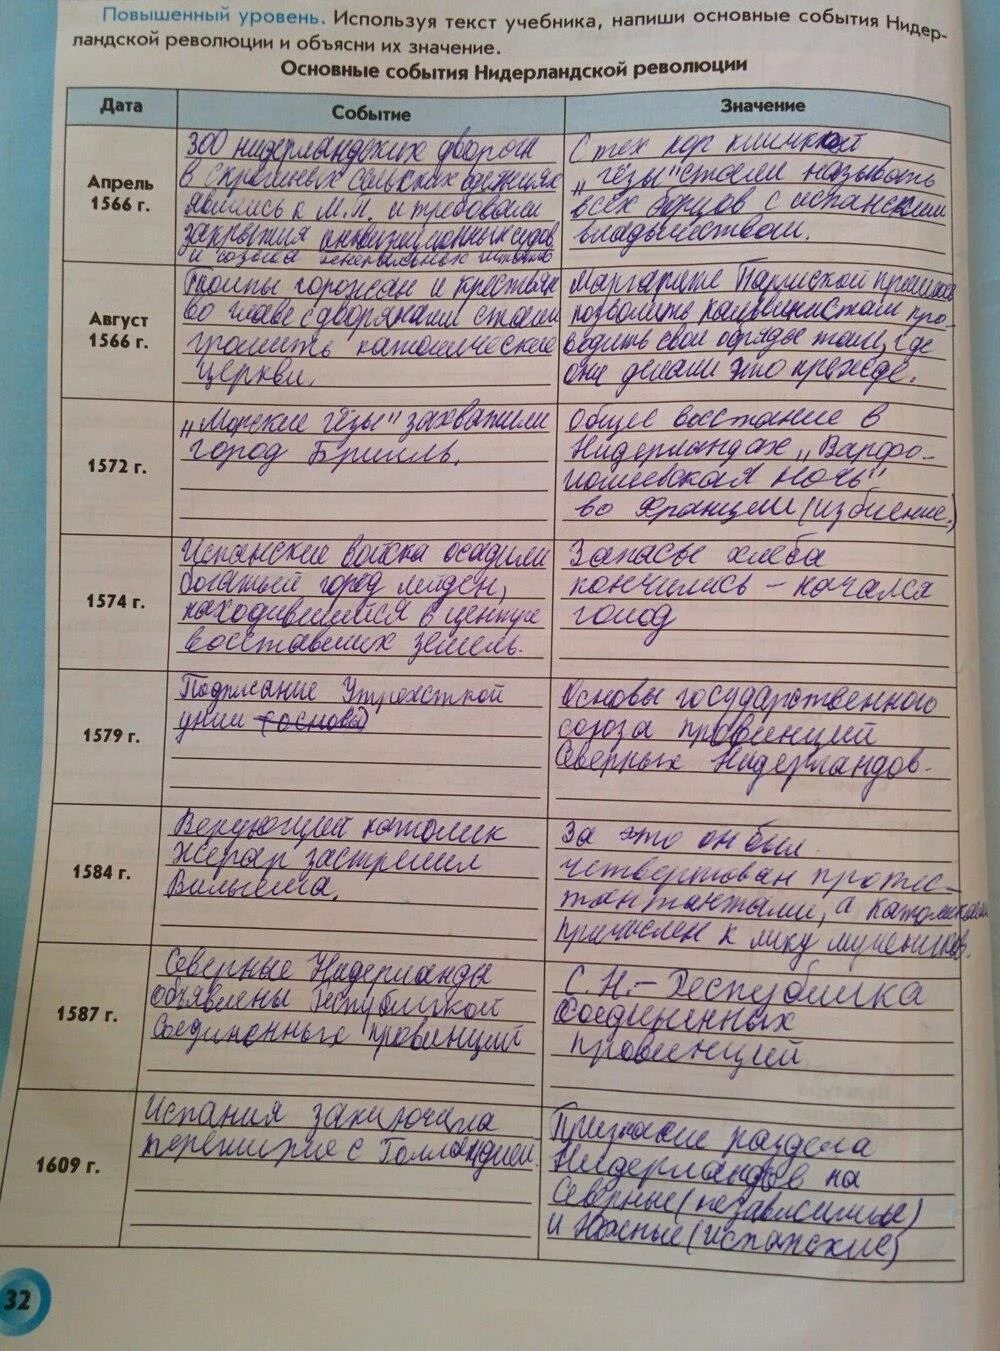 Повышенный уровень. Используя текст учебника, напиши основные события Нидер-
ландской революции и объясни их значение.
Основные события Нидерландской революции
Дата
Событие
Значение
Апрель
1566 г.
300 нидерландских дворян
в скромных сельских одеждах
явились к М.П. и требовали
закрытия инквизиционных судов
и созыва генеральных штатов
С тех пор кличкой
„гёзы" стали называть
всех борцов с испанским
владычеством.
Август
1566 г.
Толпы горожан и крестьян
во главе с дворянами стали
громить католические
церкви.
Маргарите Пармской пришлось
позволить кальвинистам про-
водить свои обряды там, где
они делали это прежде.
1572 г.
„Морские гёзы" захватили
город Брилль.
Общее восстание в
Нидерландах „Варфо-
ломеевская ночь"
во Франции (избиение.)
1574 г.
Испанские войска осадили
богатый город Лейден,
находившийся в центре
восставших земель.
Запасы хлеба
кончились – начался
голод
1579 г.
Подписание Утрехсткой
унии (основы)
Основы государственного
союза провинций
Северных Нидерландов.
1584 г.
Верующий католик
Жерар застрелил
Вильгема.
За это он был
четвертован протес-
тантантами, а католиками
причислен к лику мучеников.
1587 г.
Северные Нидерланды
объявлены Республикой
Соединенных провинций
С.Н. – Республика
Соединенных
провинций
1609 г.
Испания заключила
перемирие с Голландией.
Признание раздела
Нидерландов на
Северные (независимые)
и Южные (испанские)
32